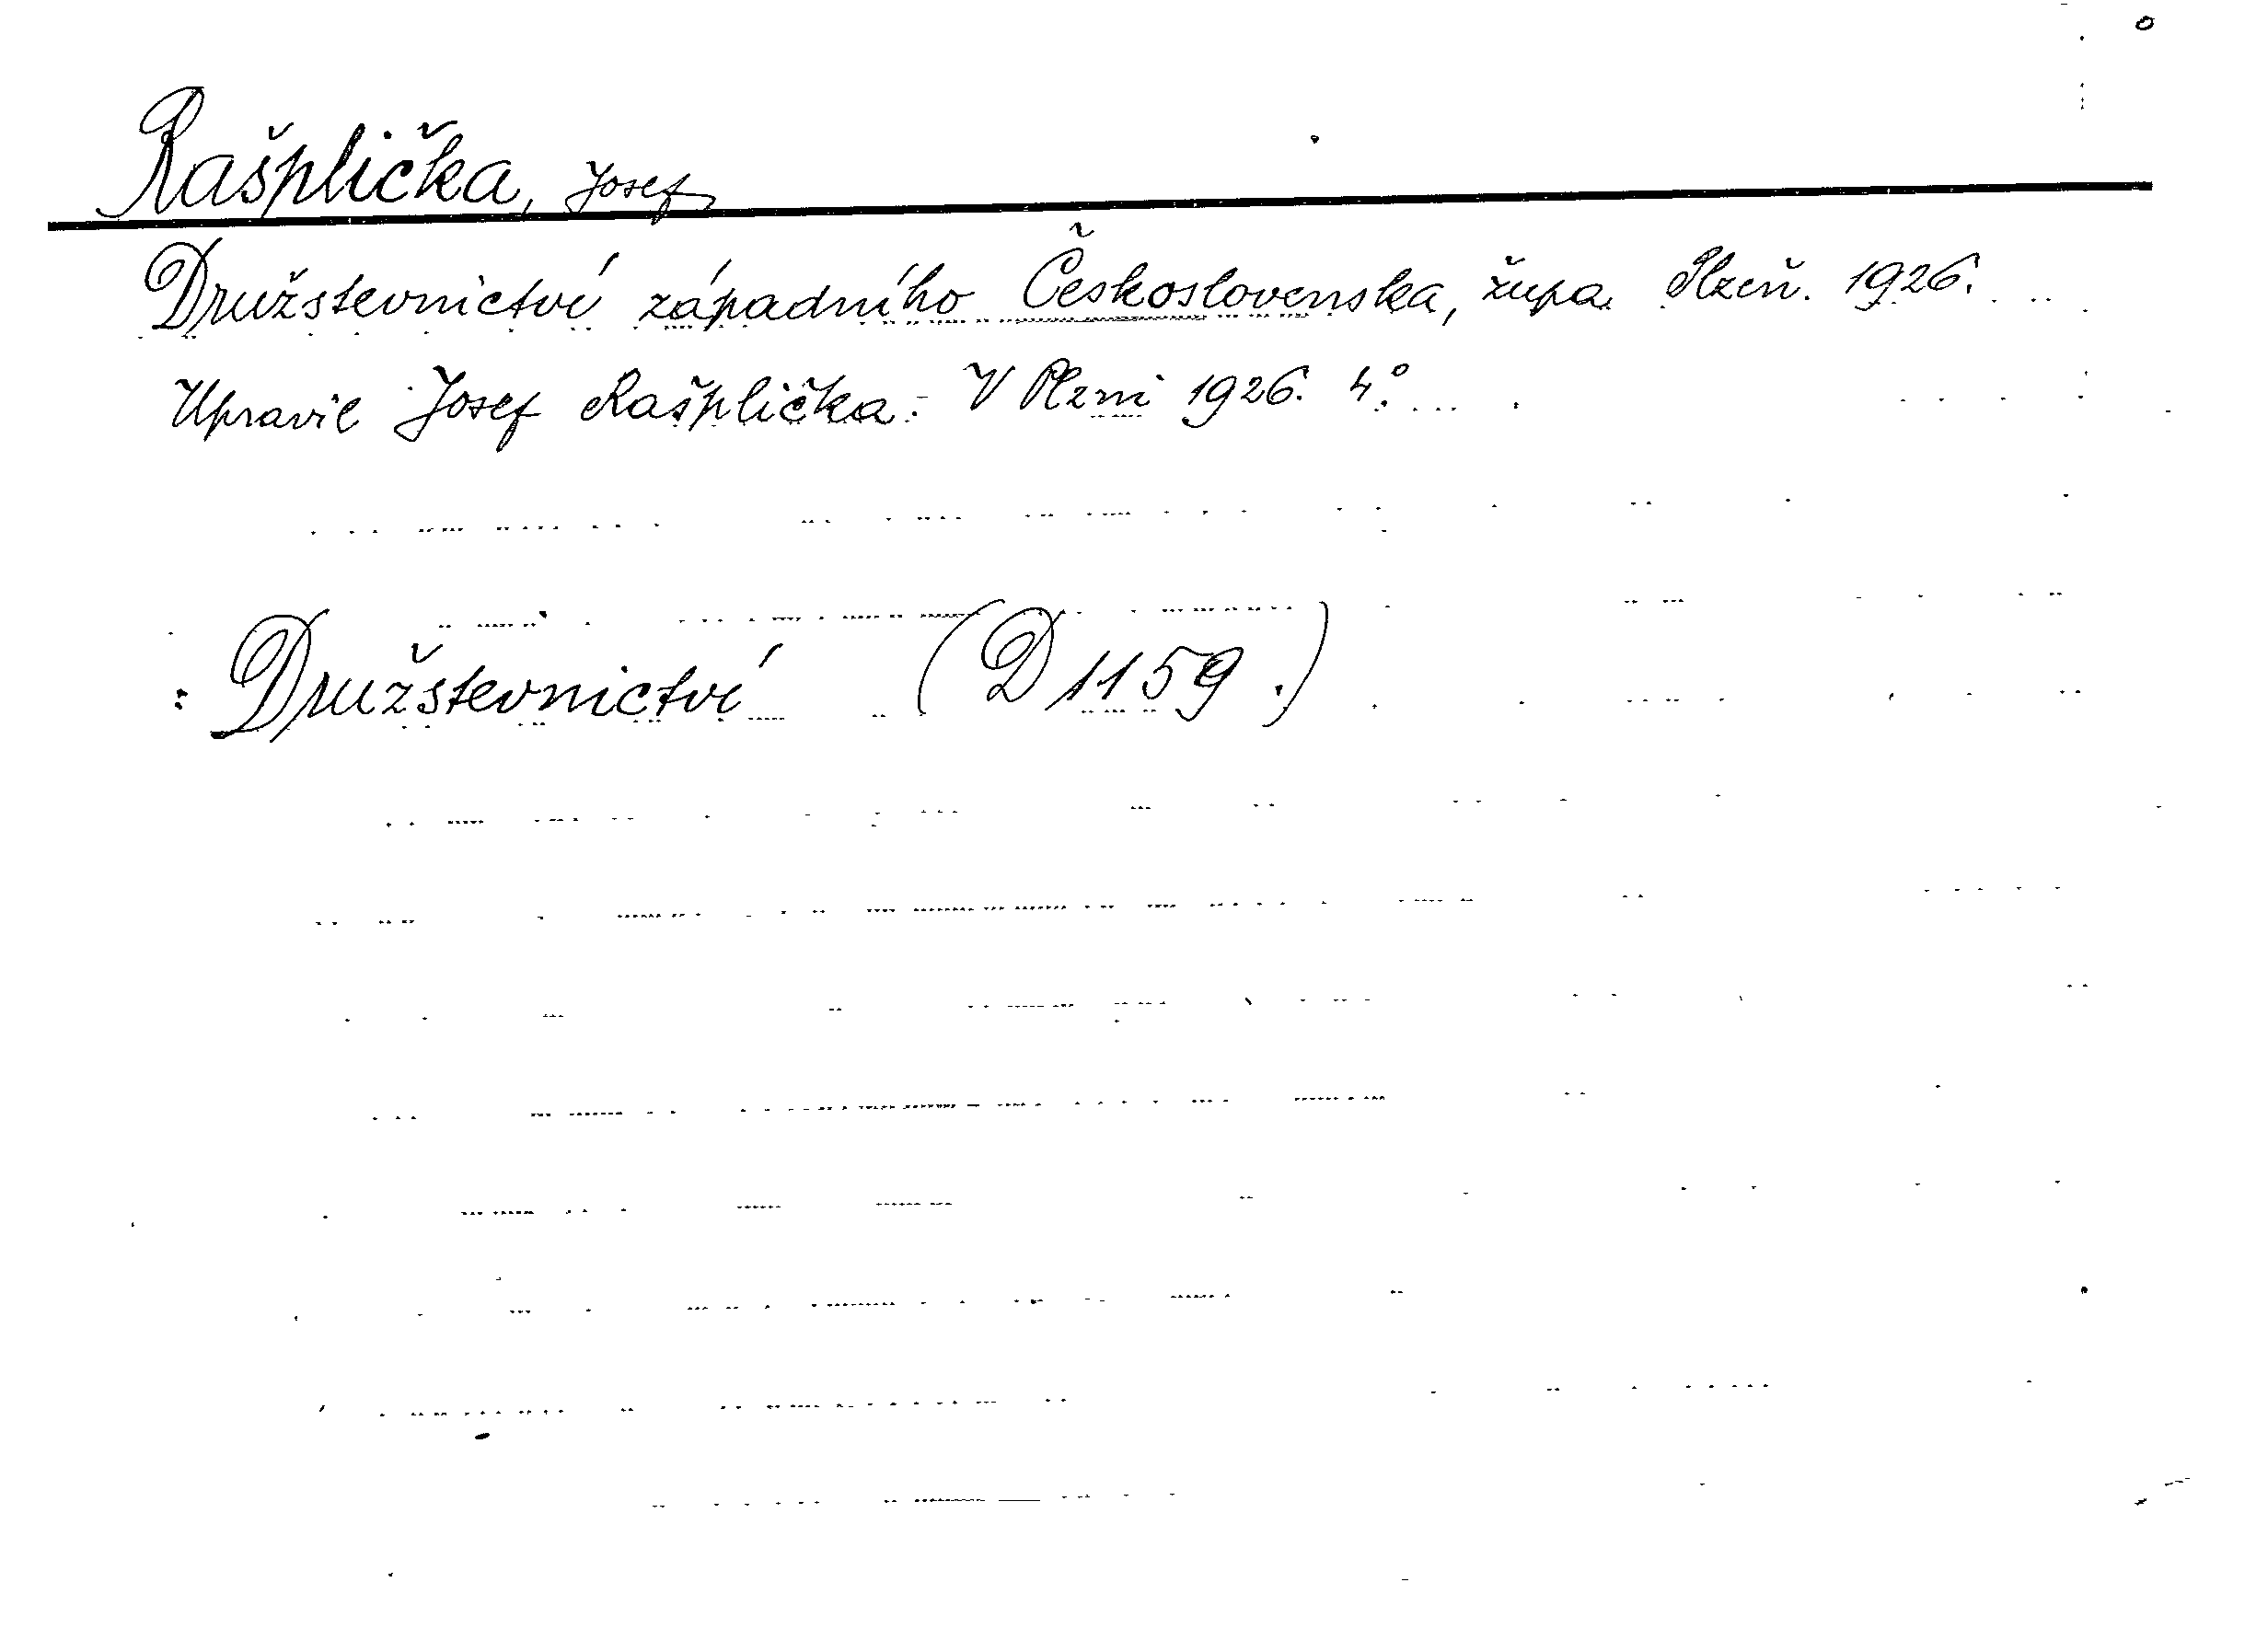 Rašplička, Josef
Družstevnictví západního Československa, župa Plzeň. 1926.
Upravil Josef Rašplička. V Plzni 1926. 4.°
: Družstevnictví (D 1159.)